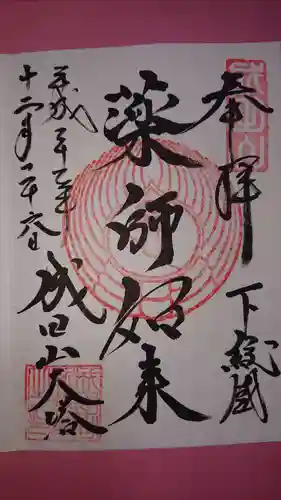 奉拝
下総國
薬師如来
平成二十七年
十二月二十六日
成田山大塔